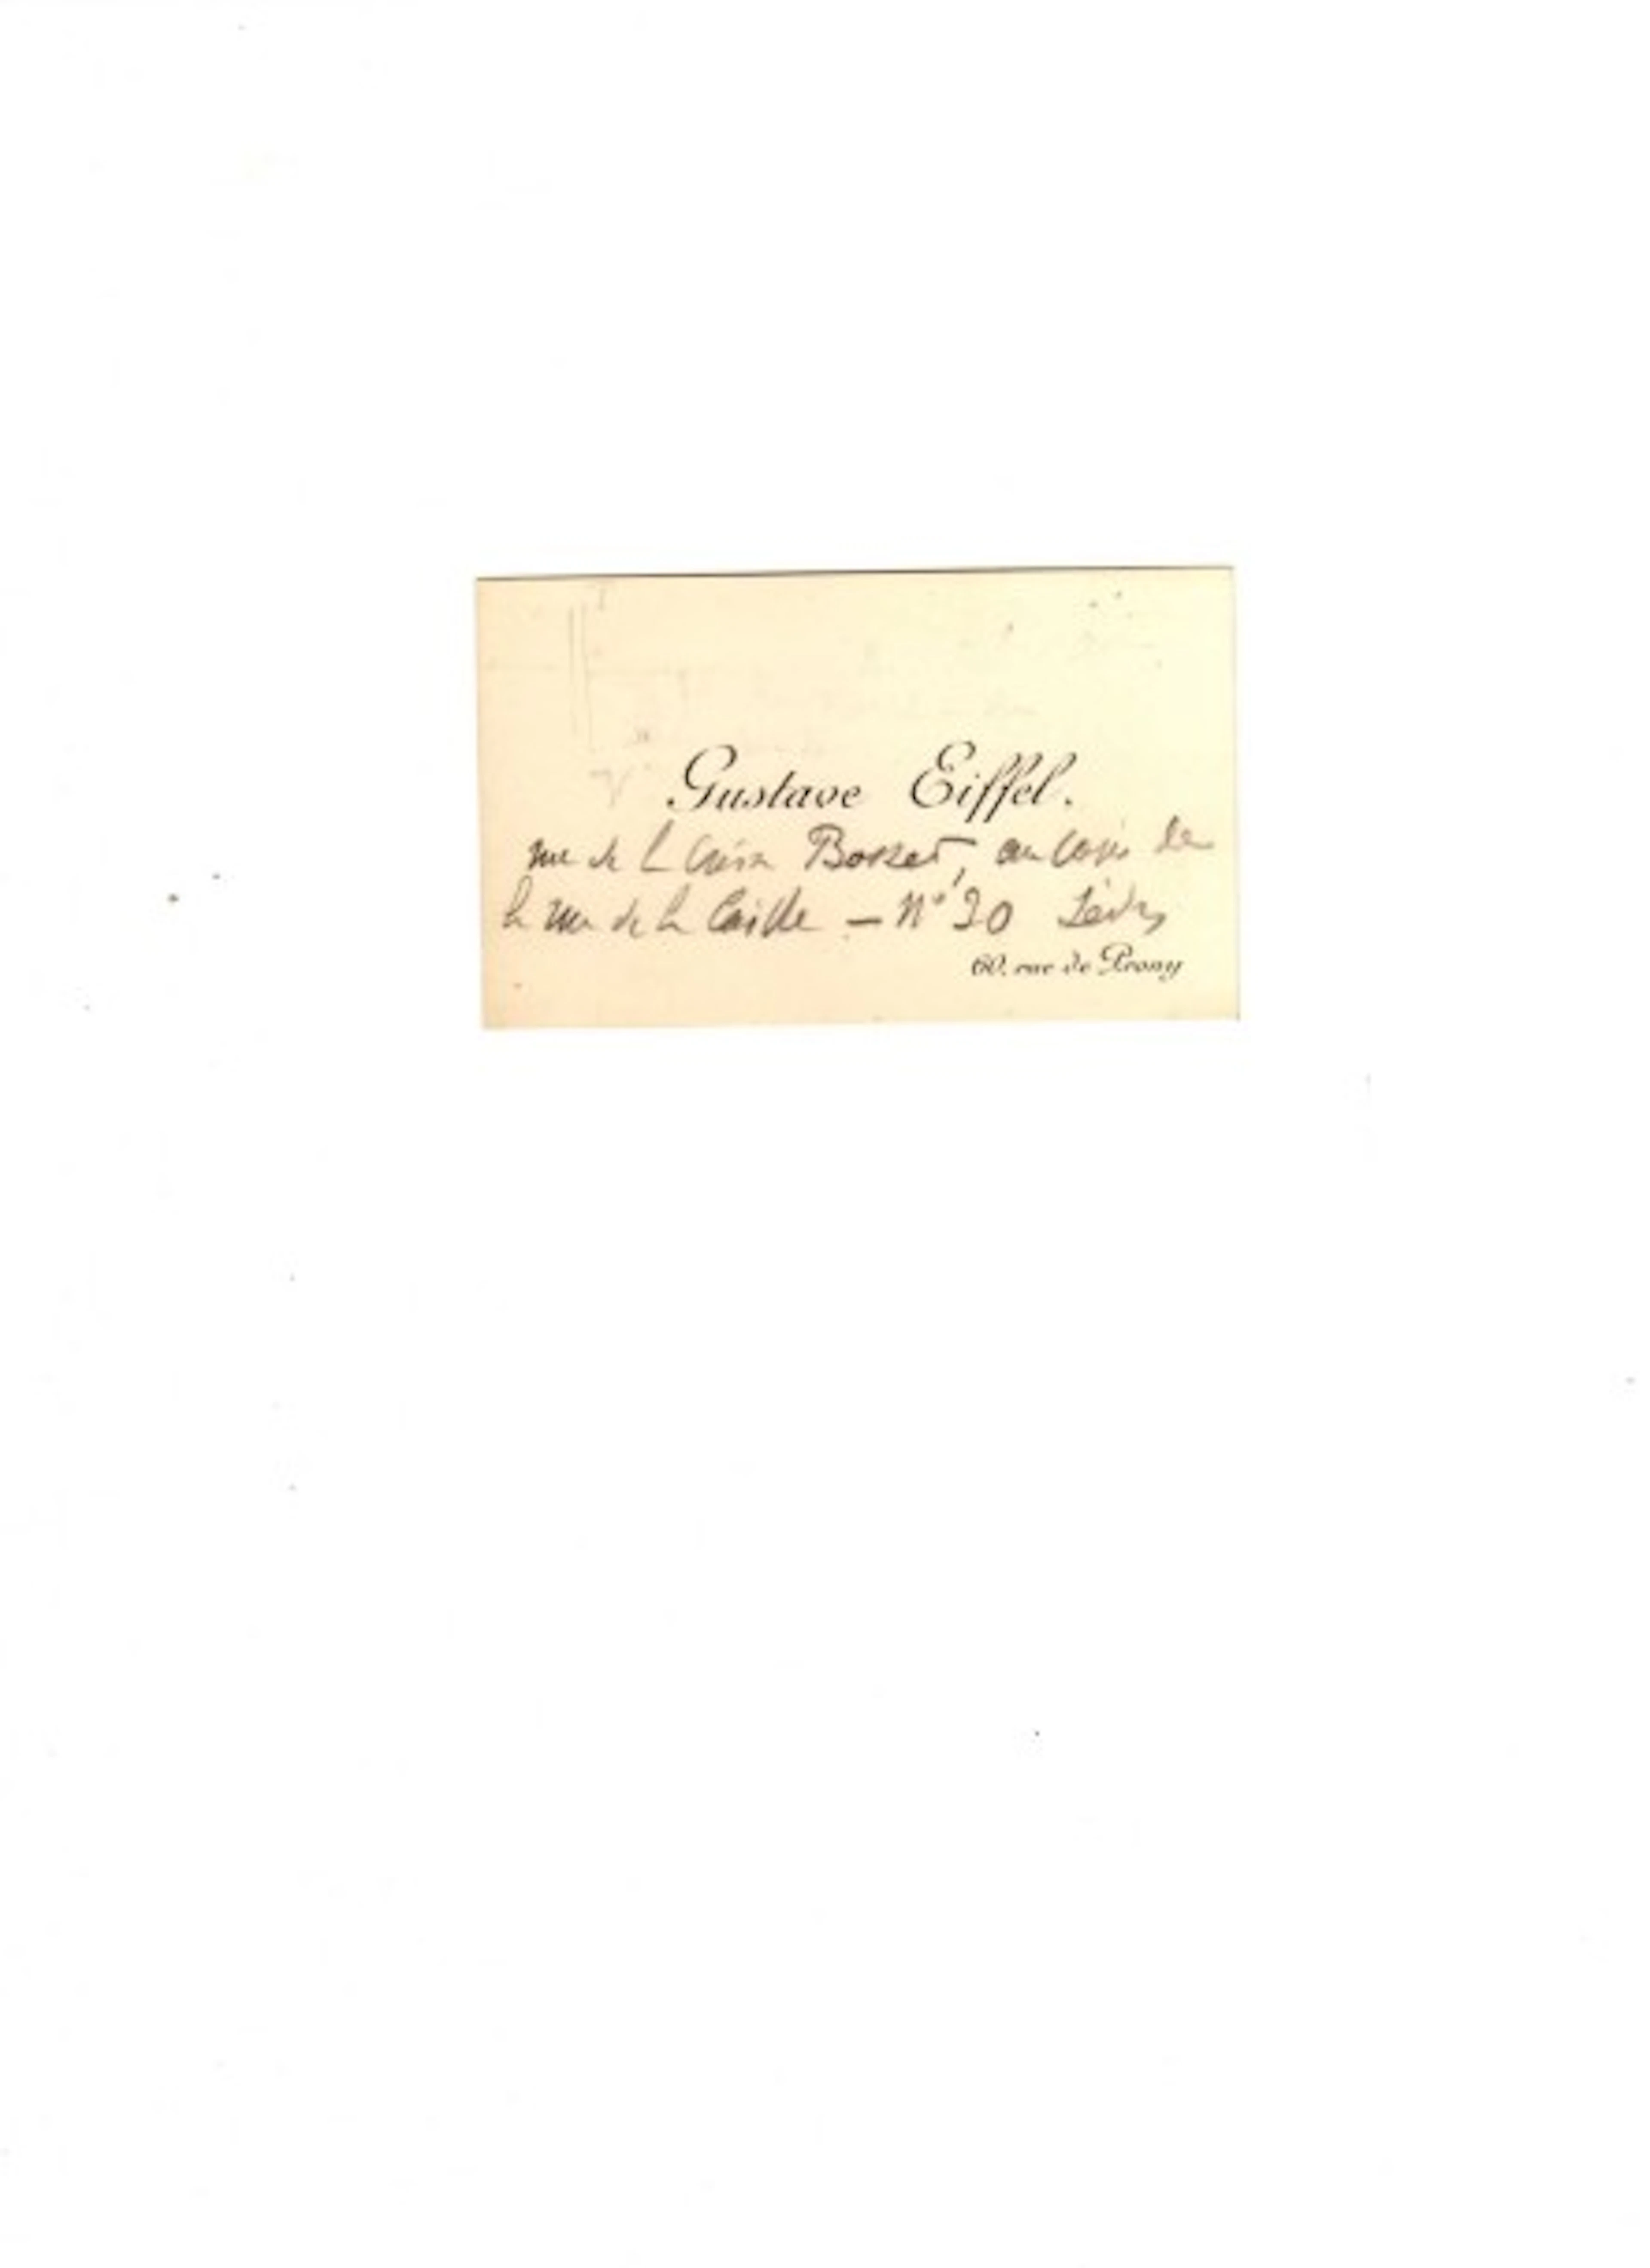 Gustave Eiffel.
rue de la Croix Bosset, au coin de
la rue de la Caille — N° 20 Sèvres
60, rue de Prony